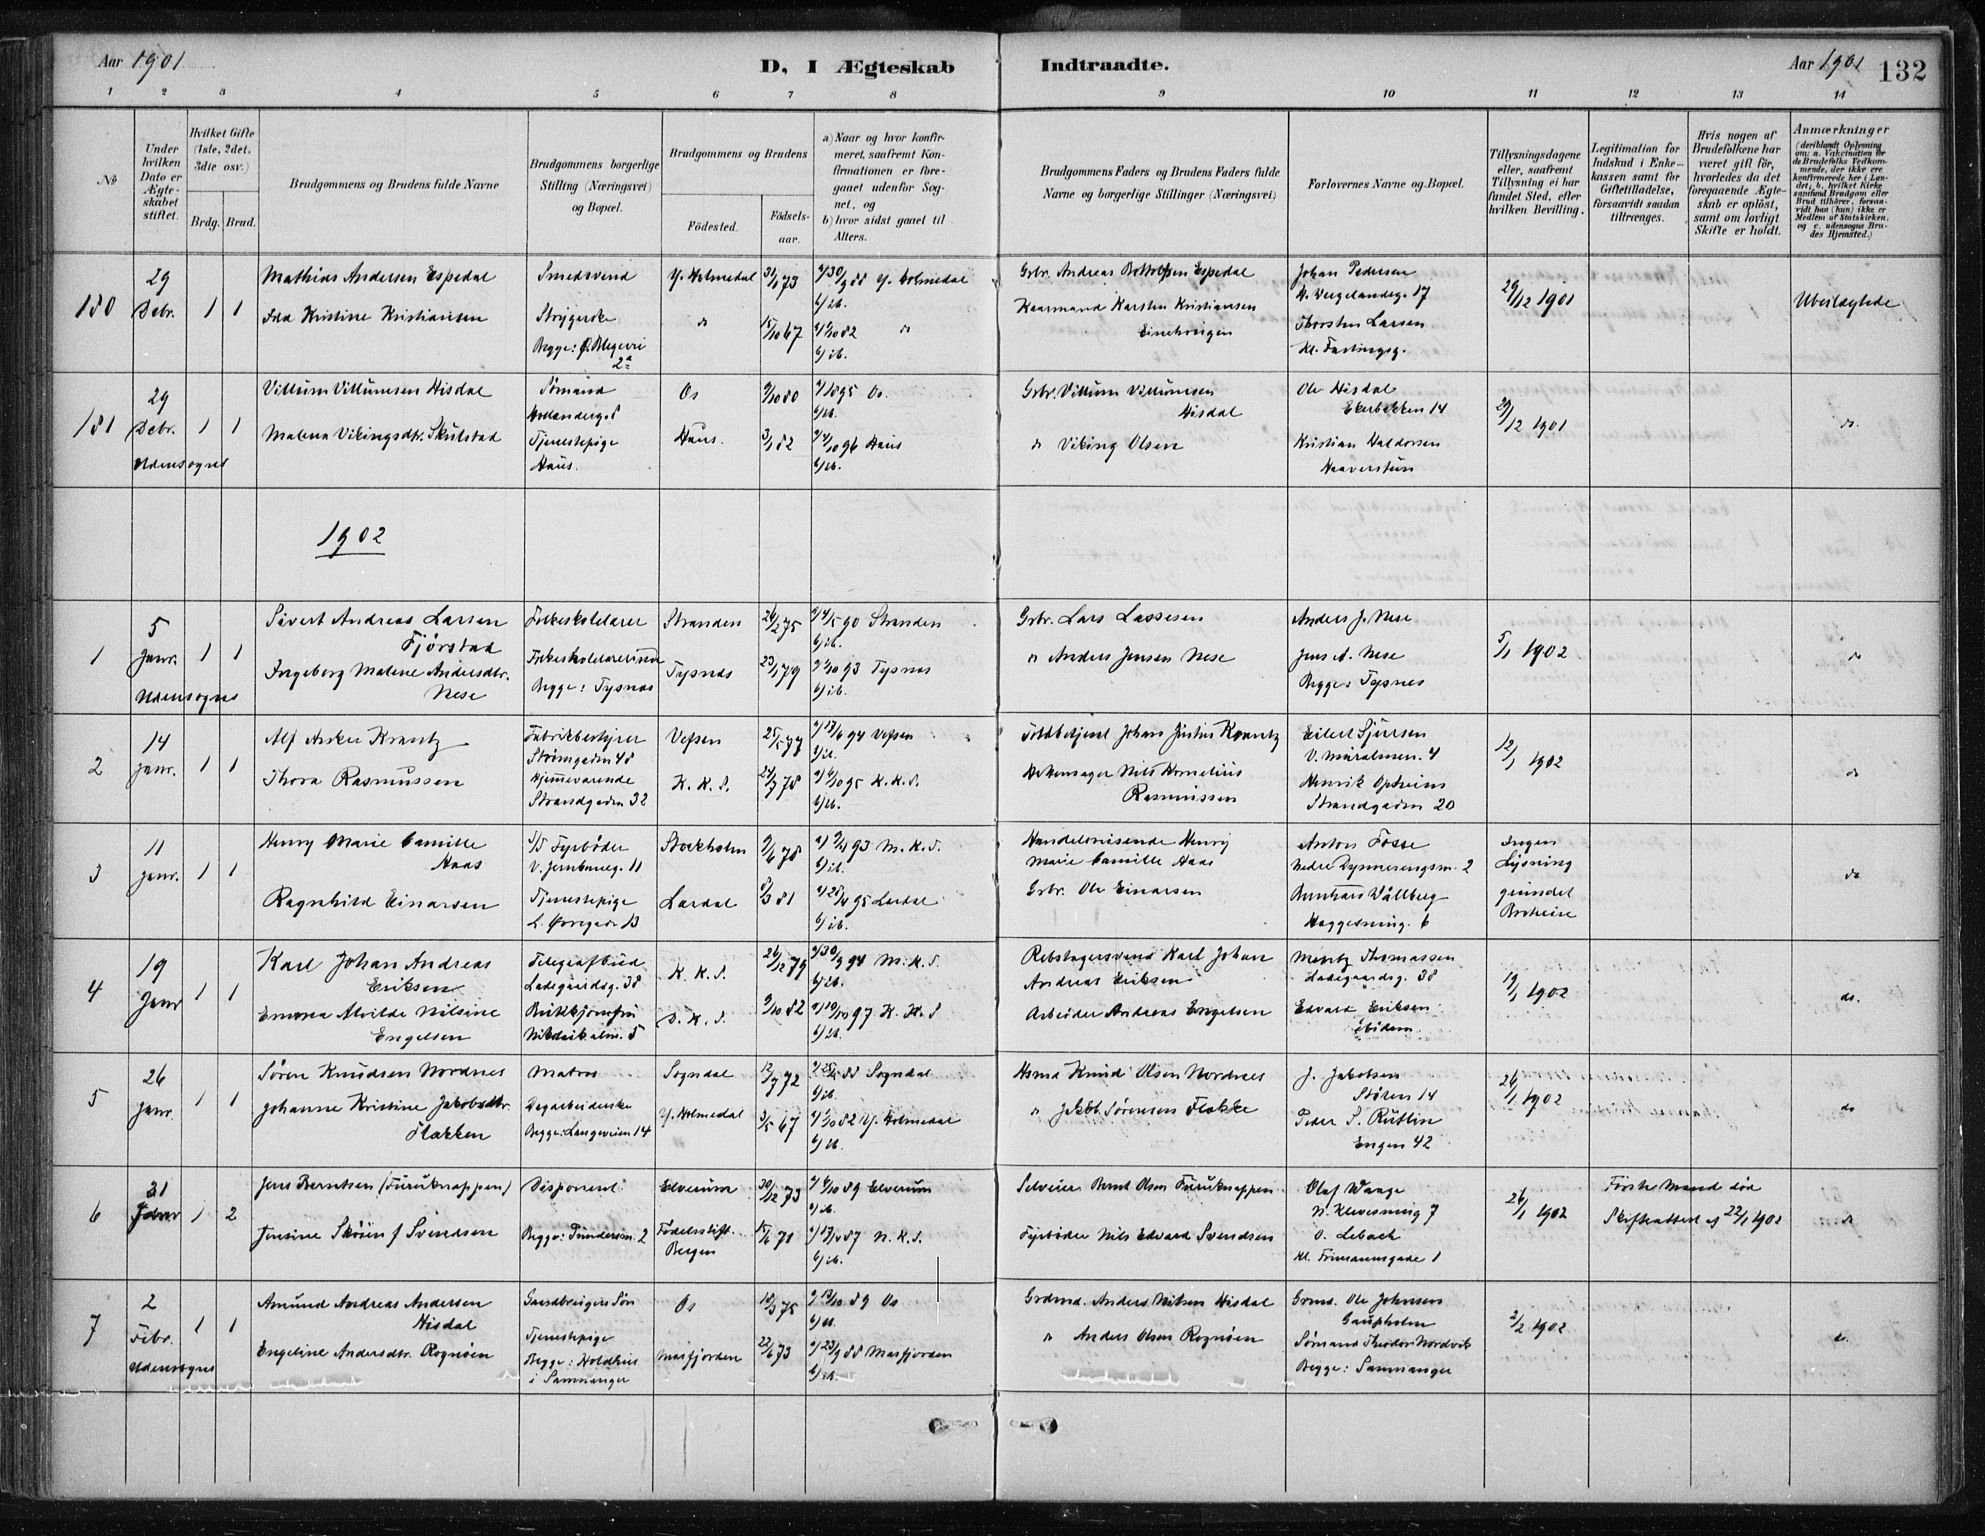 Aar 1901
D, I Ægteskab
Indtraadte.
Aar 1901
132
1 2 3 4 5 6 7 8 9 10 11 12 13 14
No
Under hvilken Dato er Ægteskabet stiftet.
Hvilket Gifte (1ste, 2det, 3die osv.)
Brdg. Brud.
Brudgommens og Brudens fulde Navne
Brudgommens borgerlige Stilling (Næringsvei) og Bopæl.
Brudgommens og Brudens
Fødested.
Fødselsaar.
a) Naar og hvor konfirmeret, saafremt Konfirmationen er foregaaet udenfor Sognet, og
b) hvor sidst gaaet til Alters.
Brudgommens Faders og Brudens Faders fulde Navne og borgerlige Stillinger (Næringsvei)
Forlovernes Navne og Bopæl.
Tillysningsdagene eller, saafremt Tillysning ei har fundet Sted, efter hvilken Bevilling.
Legitimation for Indskud i Enkekassen samt for Giftetilladelse, forsaavidt saadan tiltrænges.
Hvis nogen af Brudefolkene har været gift før, hvorledes da det foregaaende Ægteskab er opløst, samt om lovligt Skifte er holdt.
Anmærkninger (deriblandt Oplysning om: a. Vaccination for de Brudefolks Vedkommende, der ikke ere konfirmerede her i Landet; b. hvilket Kirkesamfund Brudgom eller Brud tilhører, forsaavidt han (hun) ikke er Medlem af Statskirken, og c. udensogns Brudes Hjemsted.)
180
29 Debr.
1 1
Mathias Andersen Espedal
Smedsvend
Y. Holmedal
31/1 73
a/ 30/9 88 Y. Holmedal
b/ ib.
Ida Kristine Kristiansen
Strygerske
Begge: Ø. Blegevei 2a
do
15/10 67
b/ ib.
Grbr. Andreas Botholfsen Espedal
Kaarmand Karsten Kristiansen
Johan Pedersen
N. Vergelandsg. 17
Thorsten Larsen
Kl. Fastingsg.
29/12 1901
Ubeslægtede
181
29 Debr.
Udensogns
1 1
Villum Villumsen Hisdal
Sømand
Hollanderg. 8
Os
9/10 80
Os
b/ ib.
Malena Vikingsdtr. Skulstad
Tjenestepige
Haus.
Haus.
3/1 82
a/ 4/10 96 Haus
b/ ib.
Grbr. Villum Villumsen Hisdal
" Viking Olsen
Ole Hisdal
Ekrebakken 14
Kristian Haldorsen
Haaverstun
29/12 1901
do.
1902
1
5 Janr.
Udensogns
1 1
Sivert Andreas Larsen Fjørstad
Folkeskolelærer
Stranden
26/2 75
a/ 4/5 90 Stranden
b/ ib.
Ingeborg Malene Andersdtr. Nese
Folkeskolelærerinde
Begge: Tysnes
Tysnes
23/1 79
a/ 1/10 93 Tysnes
b/ ib.
Grbr. Lars Lassesen
" Anders Jensen Nese
Anders J. Nese
Jens A. Nese
Begge: Tysnes
5/1 1902
do
2
14 Janr.
1 1
Alf Anker Krantz
Fabrikbestyrer
Strømgaden 48
Vefsen
25/5 77
a/ 17/6 94 Vefsen
b/ ib.
Thora Rasmussen
Hjemmeværende
Strandgaden 32
K. K. S.
24/7 78
a/ 6/10 95 K. K. S.
b/ ib.
Toldbetjent Johan Justus Krantz
Nils Kornelius Rasmussen
Eilert Sjursen
V. Muralmen. 4
Henrik Opheim
Strandgaden 20
12/1 1902
do
3
11 Janr.
1 1
Henry Marie Camille Haas
S/S Fyrbøder
V. Jernbaneg. 11
Stockholm
9/6 78
93 M. K. S.
b/ ib.
Ragnhild Einarsen
Tjenestepige
L. Øvregade 13
Lærdal
8/3 81
95 Lærdal
b/ ib.
Handelsreisende Henry Marie Camille Haas
Grbr. Ole Einarsen
Anton Fosse
Nedre Dyrmersengsm. 2
Wållberg
Haggesmug. 6
Ingen Lysning
do
4
19 Janr
1 1
Karl Johan Andreas Eriksen
Telegrafbud
Ladegaardsg. 38
K. K. S.
26/12 79
a/ 30/9 94 M. K. S.
b/ ib.
Emma Alvilde Nilsine Engelsen
Butikjomfru
D. K. S.
9/10 82
a/ 10/10 97 K. K. S
b/ ib.
Rebslagersvend Karl Johan Andreas Eriksen
Arbeider Andreas Engelsen
Mentz Thomassen
Ladegaardsg. 38
Edvard Eriksen
ibidem
19/1 1902
do.
5
26 Janr.
1 1
Søren Knudsen Nordnes
Matros
Sogndal
12/7 72
88 Sogndal
b/ ib.
Johanne Kristine Jakobsdtr. Flekken
Dagarbeiderske
Begge: Langeveien 14
Y. Holmedal
3/5 67
a/ 1/10 82 Y. Holmedal
b/ ib.
Knud Olsen Nordnes
" Jakob Sørensen Flekke
J. Jakobsen
Støren 14
Peder S. Rutlin
Engen 42
26/1 1902
do
6
31 Janr
1 2
Jens Berntsen (Furuknappen)
Disponent
Elverum
30/12 73
a/ 6/10 89 Elverum
b/ ib.
Jensine Skøien f. Svendsen
Fødselsstift. Bergen
15/6 71
87 N. K. S.
b/ ib.
Selveier Bernt Olsen Furuknappen
Fyrbøder Nils Edvard Svendsen
Olaf Waage
N. Klevesmug 7
O. Lebach
Kl. Frimannsgade 1
26/1 1902
Første Mand død
Skifteattest af 22/1 1902
do
7
2 Febr.
Udensogns
1 1
Amund Andreas Andersen Hisdal
Gaardbrugers Søn
Os
18/3 75
a/ 13/10 89 Os
b/ ib.
Engeline Andersdtr. Rognøen
Tjenestepige
Begge: Holdhus i Sammanger
Masfjorden
22/6 73
a/ 23/9 88 Masfjorden
b/ ib.
Grdmd. Anders Nilsen Hisdal
" Anders Olsen Rognøen
Grmd. Ole Johnsen Gaupholm
Sømand Theodor Nordvik
Begge: Sammanger
2/2 1902
do